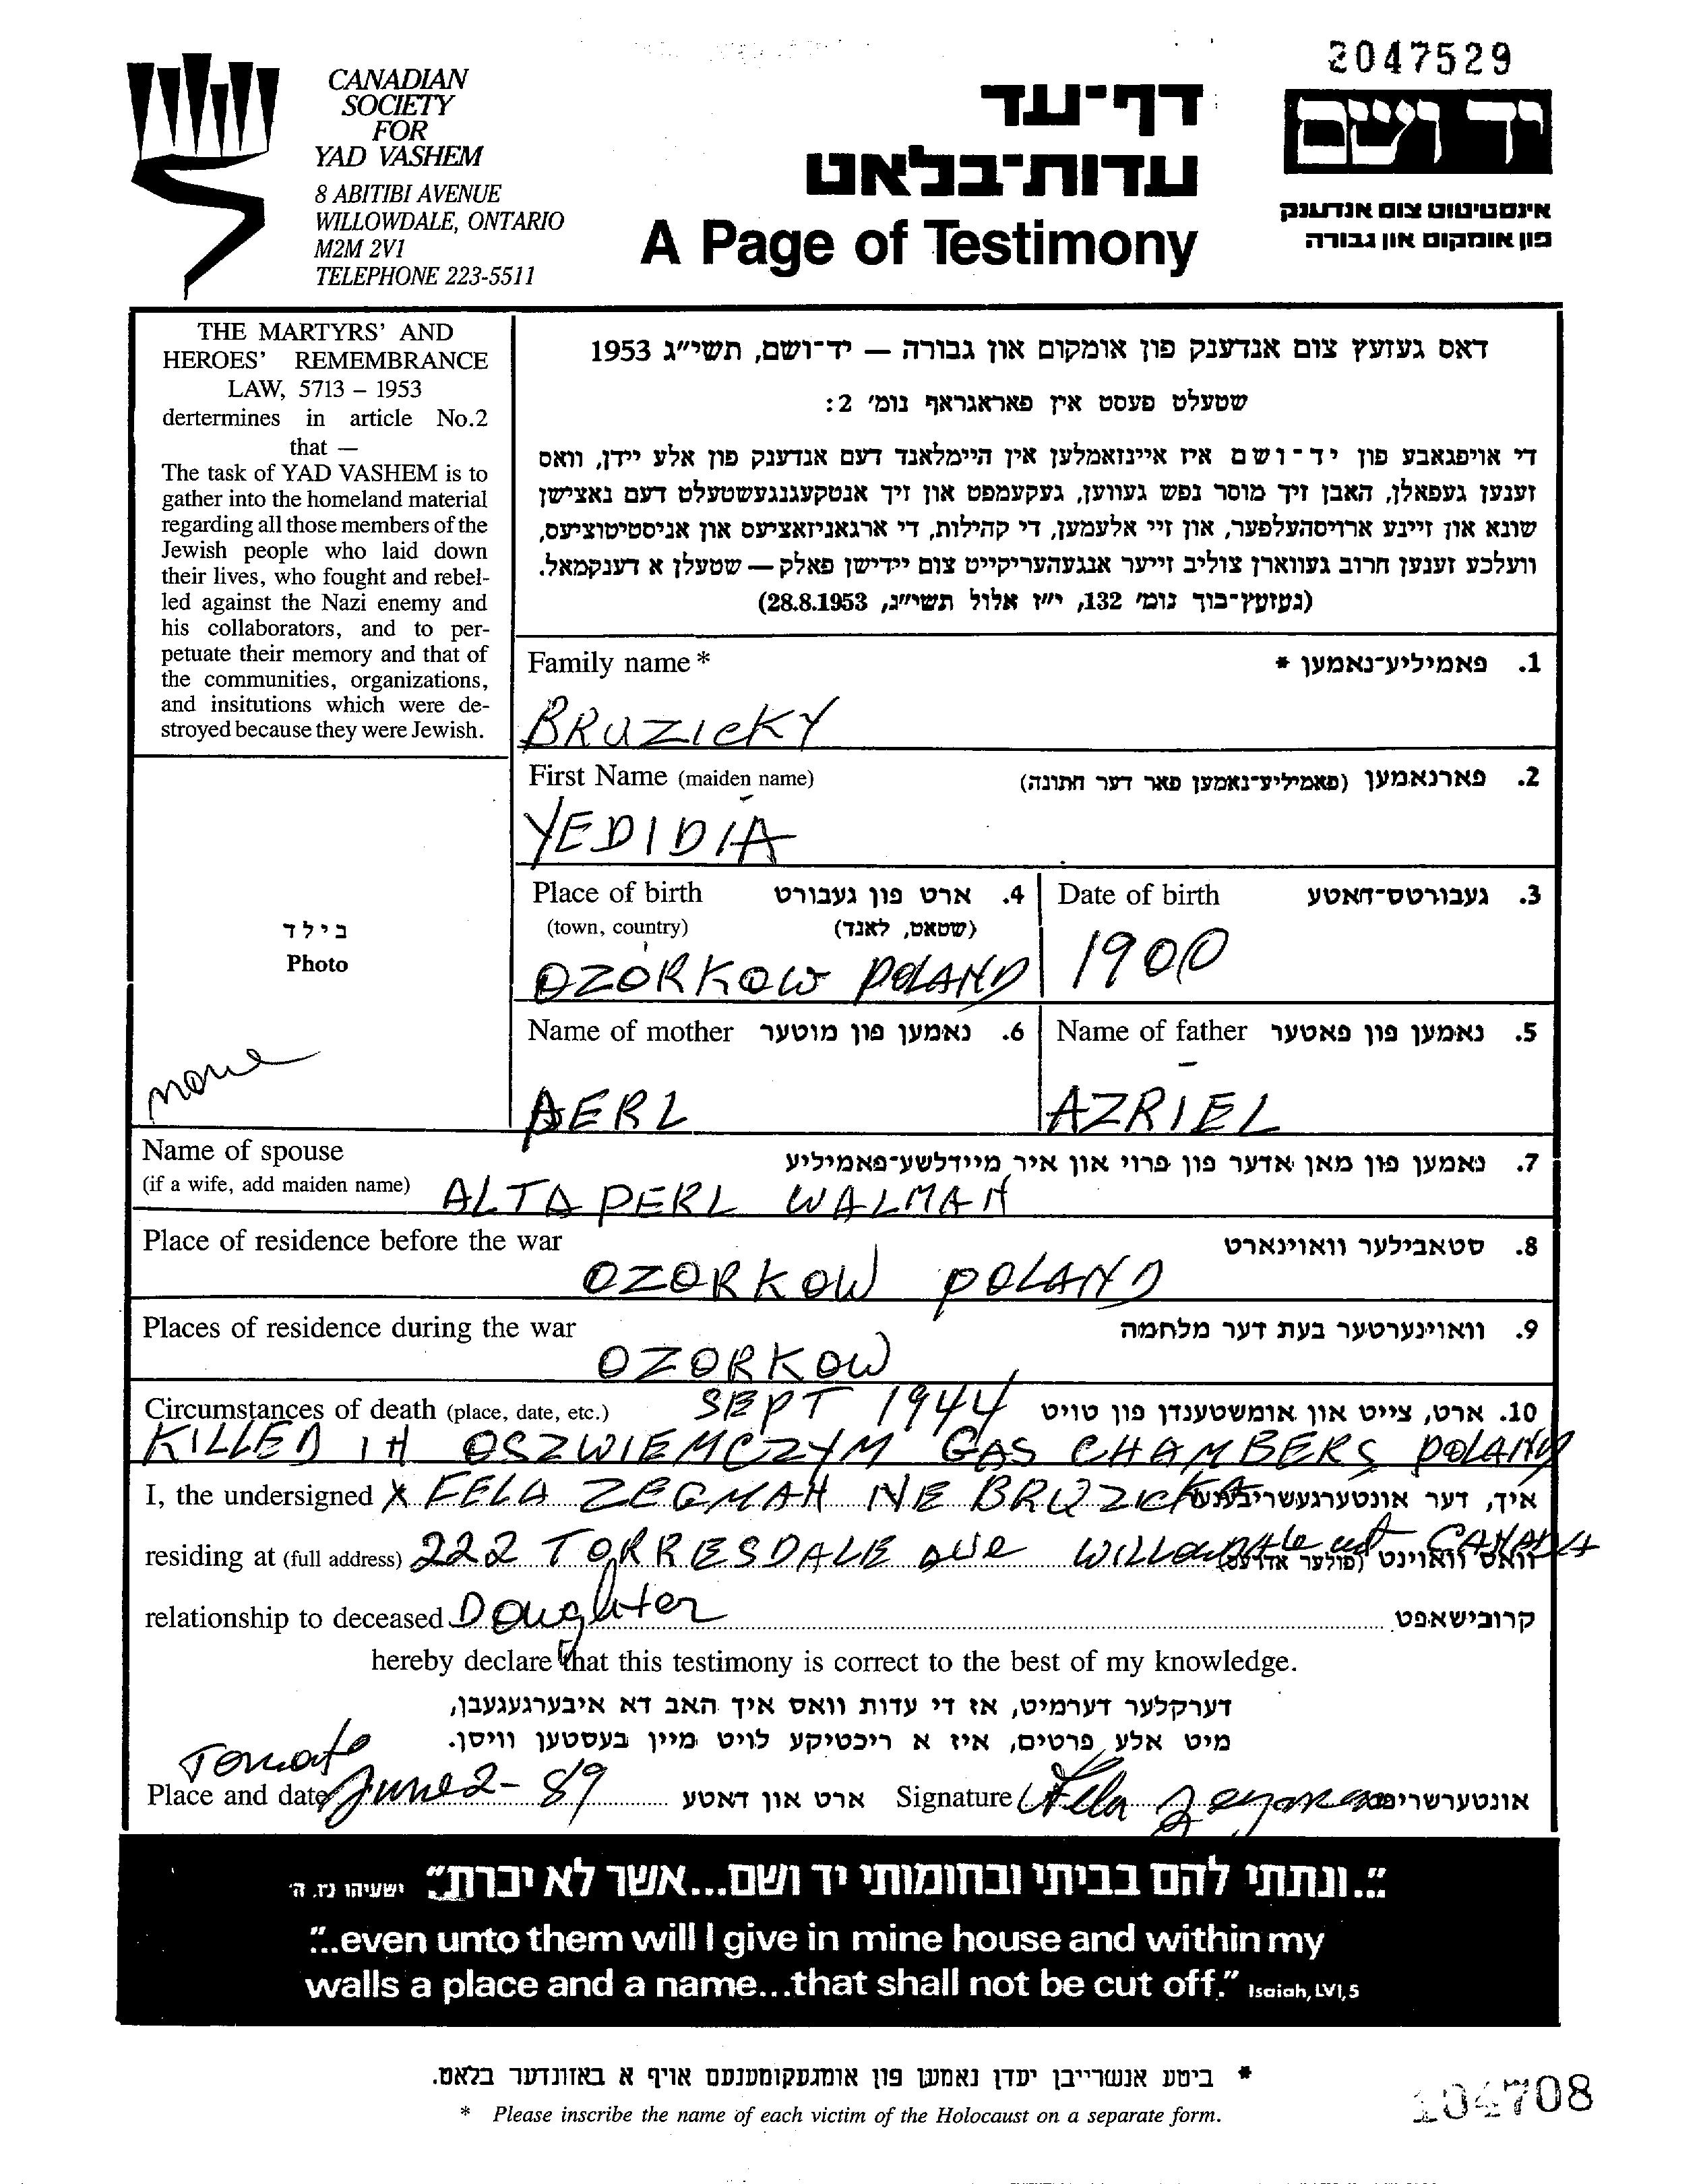 2047529
CANADIAN
SOCIETY
FOR
YAD VASHEM
8 ABITIBI AVENUE
WILLOWDALE, ONTARIO
M2M 2V1
TELEPHONE 223-5511
דף־עד
עדות־בלאט
A Page of Testimony
יד ושם
אינסטיטוט צום אנדענק
פון אומקום און גבורה
THE MARTYRS' AND
HEROES' REMEMBRANCE
LAW, 5713 – 1953
dertermines in article No.2
that —
The task of YAD VASHEM is to
gather into the homeland material
regarding all those members of the
Jewish people who laid down
their lives, who fought and rebel-
led against the Nazi enemy and
his collaborators, and to per-
petuate their memory and that of
the communities, organizations,
and insitutions which were de-
stroyed because they were Jewish.
דאס געזעץ צום אנדענק פון אומקום און גבורה — יד־ושם, תשי״ג 1953
שטעלט פעסט אין פאראגראף נומ׳ 2:
די אויפגאבע פון יד־ושם איז איינזאמלען אין היימלאנד דעם אנדענק פון אלע יידן, וואס
זענען געפאלן, האבן זיך מוסר נפש געווען, געקעמפט און זיך אנטקעגנגעשטעלט דעם נאצישן
שונא און זיינע ארויסהעלפער, און זיי אלעמען, די קהילות, די ארגאניזאציעס און אניסטיטוציעס,
וועלכע זענען חרוב געווארן צוליב זייער אנגעהעריקייט צום יידישן פאלק — שטעלן א דענקמאל.
(געזעץ־בוך נומ׳ 132, י״ז אלול תשי״ג, 28.8.1953)
Family name * פאמיליע־נאמען * .1
BRUZICKY
First Name (maiden name) פארנאמען (פאמיליע־נאמען פאר דער חתונה) .2
YEDIDIA
Place of birth ארט פון געבורט .4
(town, country) (שטאט, לאנד)
OZORKOW POLAND
Date of birth געבורטס־דאטע .3
1900
Name of mother נאמען פון מוטער .6
PERL
Name of father נאמען פון פאטער .5
AZRIEL
בילד
Photo
none
Name of spouse נאמען פון מאן אדער פון פרוי און איר מיידלשע־פאמיליע .7
(if a wife, add maiden name) ALTA PERL WALMAN
Place of residence before the war סטאבילער וואוינארט .8
OZORKOW POLAND
Places of residence during the war וואוינערטער בעת דער מלחמה .9
OZORKOW
Circumstances of death (place, date, etc.) SEPT 1944 ארט, צייט און אומשטענדן פון טויט .10
KILLED IN OSZWIEMCZYM GAS CHAMBERS POLAND
I, the undersigned X FELA ZEGMAN NE BRUZICKA איך, דער אונטערגעשריבענע
residing at (full address) 222 TORRESDALE AVE WILLOWDALE ont CANADA וואס וואוינט (פולער אדרעס)
relationship to deceased Doughter קרובישאפט
hereby declare that this testimony is correct to the best of my knowledge.
דערקלער דערמיט, אז די עדות וואס איך האב דא איבערגעגעבן,
מיט אלע פרטים, איז א ריכטיקע לויט מיין בעסטען וויסן.
Place and date June 2-89 ארט און דאטע Signature Fela אונטערשריפט
״...ונתתי להם בביתי ובחומותי יד ושם...אשר לא יכרת״ ישעיהו נו, ה׳
"...even unto them will I give in mine house and within my
walls a place and a name...that shall not be cut off." Isaiah, LVI, 5
* ביטע אנשרייבן יעדן נאמען פון אומגעקומענעם אויף א באזונדער בלאט.
* Please inscribe the name of each victim of the Holocaust on a separate form.
104708